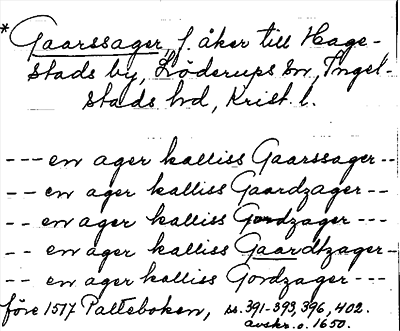 *Gaarssager, f. åker till Hage-
stads by, Löderups sn, Ingel-
stads hd, Krist. l.
--- en ager kalliss Gaarssager --
-- en ager kalliss Gaardzager --
-- en ager kalliss Gordzager ---
-- en ager kalliss Gaardtzager -
-- en ager kalliss Gordzager ---
före 1517 Palteboken, ss. 391-393, 396, 402.
avskr. o. 1650.